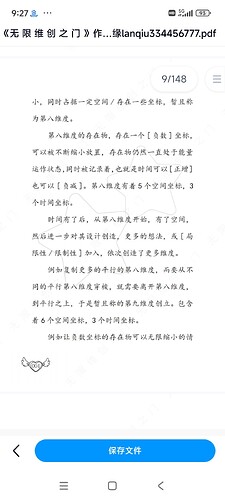 9:27
5G
93
《无限维创之门》作...缘lanqiu334456777.pdf
9/148
小，同时占据一定空间/存在一些坐标，暂且称
为第八维度。
第八维度的存在物，存在一个[负数]坐标，
可以被不断缩小放置，存在物仍然一直处于能量
运作状态，同时被记录着，也就是时间可以[正增]
也可以[负减]。第八维度有着5个空间坐标，3
个时间坐标。
时间有了后，从第八维度开始，有了空间，
然后进一步对其设计创造，更多的想法，或[局
限性/限制性]加入，依次创造了更多维度。
例如复制更多的平行的第八维度，而要从不
同的平行第八维度穿梭，就需要离开第八维度，
到平行之上，于是暂且称的第九维度创立。包含
着6个空间坐标，3个时间坐标。
例如让负数坐标的存在物可以无限缩小的情
保存文件